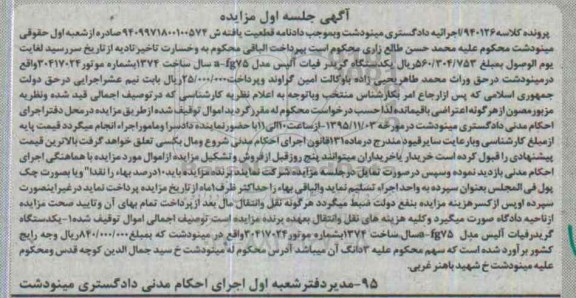 آگهی جلسه اول مزایده
پرونده کلاسه ۹۴۰۱۲۶ اجرائیه دادگستری مینودشت وبموجب دادنامه قطعیت یافته ش ۹۴۰۹۹۷۱۸۰۰۱۰۰۵۷۴ صادره از شعبه اول حقوقی
مینودشت محکوم علیه محمد حسن طالع زاری محکوم است بپرداخت الباقی محکوم به وخسارت تاخیر تادیه از تاریخ سررسید لغایت
یوم الوصول بمبلغ ۵۶۰/۳۰۴/۷۵۳ریال یکدستگاه گریدر فیات آلیس مدل a-fg۷۵ سال ساخت ۱۳۷۴بشماره موتور۳۰۴۱۷۰۲۴واقع
درمینودشت درحق وراث محمد طاهریحیی زاده باوکالت امین گراوند وپرداخت۲۵/۰۰۰/۰۰۰ریال بابت نیم عشراجرایی درحق دولت
جمهوری اسلامی که پس ازارجاع امر بکارشناس منتخب وباتوجه به اعلام نظریه کارشناسی که درتوصیف اجمالی قید شده ونظریه
مزبورمصون ازهرگونه اعتراضی باقیمانده ولذا حسب درخواست محکوم له مقررگردید اموال توقیف شده ازطریق مزایده درمحل دفتراجرای
احکام مدنی دادگستری مینودشت درمورخه ۱۳۹۵/۱۱/۰۳ -ازساعت۱۰الی۱۱باحضورنماینده دادسرا وماموراجراء انجام میگردد قیمت پایه
ازمبلغ کارشناسی وبارعایت سایرقیود مندرج درماده۱۳۱قانون اجرای احکام مدنی شروع ومال بکسی تعلق خواهد گرفت بالاترین قیمت
پیشنهادی را قبول کرده است خریدار یاخریداران میتوانند پنج روزقبل ازفروش وتشکیل مزایده ازاموال مورد مزایده با هماهنگی اجرای
احکام مدنی بازدید نموده وسپس درصورت تمایل درجلسه مزایده شرکت نمایند برنده مزایده باید۱۰درصد بهاء را نقدا" ویا بصورت چک
پول فی المجلس بعنوان سپرده به واحد اجراء تسلیم نماید والباقی بهاء را حداکثر ظرف۱ماه از تاریخ مزایده پرداخت نماید در غیراینصورت
سپرده اوپس ازکسر هزینه مزایده بنفع دولت ضبط میگردد هرگونه نقل وانتقال مال بعد ازپرداخت تمام بهای آن وتایید صحت مزایده
ازناحیه دادگاه صورت میگیرد وکلیه هزینه های نقل وانتقال بعهده برنده مزایده است توصیف اجمالی اموال توقیف شده۱-یکدستگاه
گریدرفیات آلیس مدل a-fg۷۵سال ساخت ۱۳۷۴بشماره موتور۳۰۴۱۷۰۲۴واقع در مینودشت که بمبلغ۸۴۰/۰۰۰/۰۰۰ریال وجه رایج
کشور برآورد شده است که سهم محکوم علیه ۳دانگ آن میباشد آدرس محکوم له مینودشت خ سید جمال الدین کوچه قدس ومحکوم
علیه مینودشت خ شهید باهنر غربی.
۹۵-مدیردفترشعبه اول اجرای احکام مدنی دادگستری مینودشت